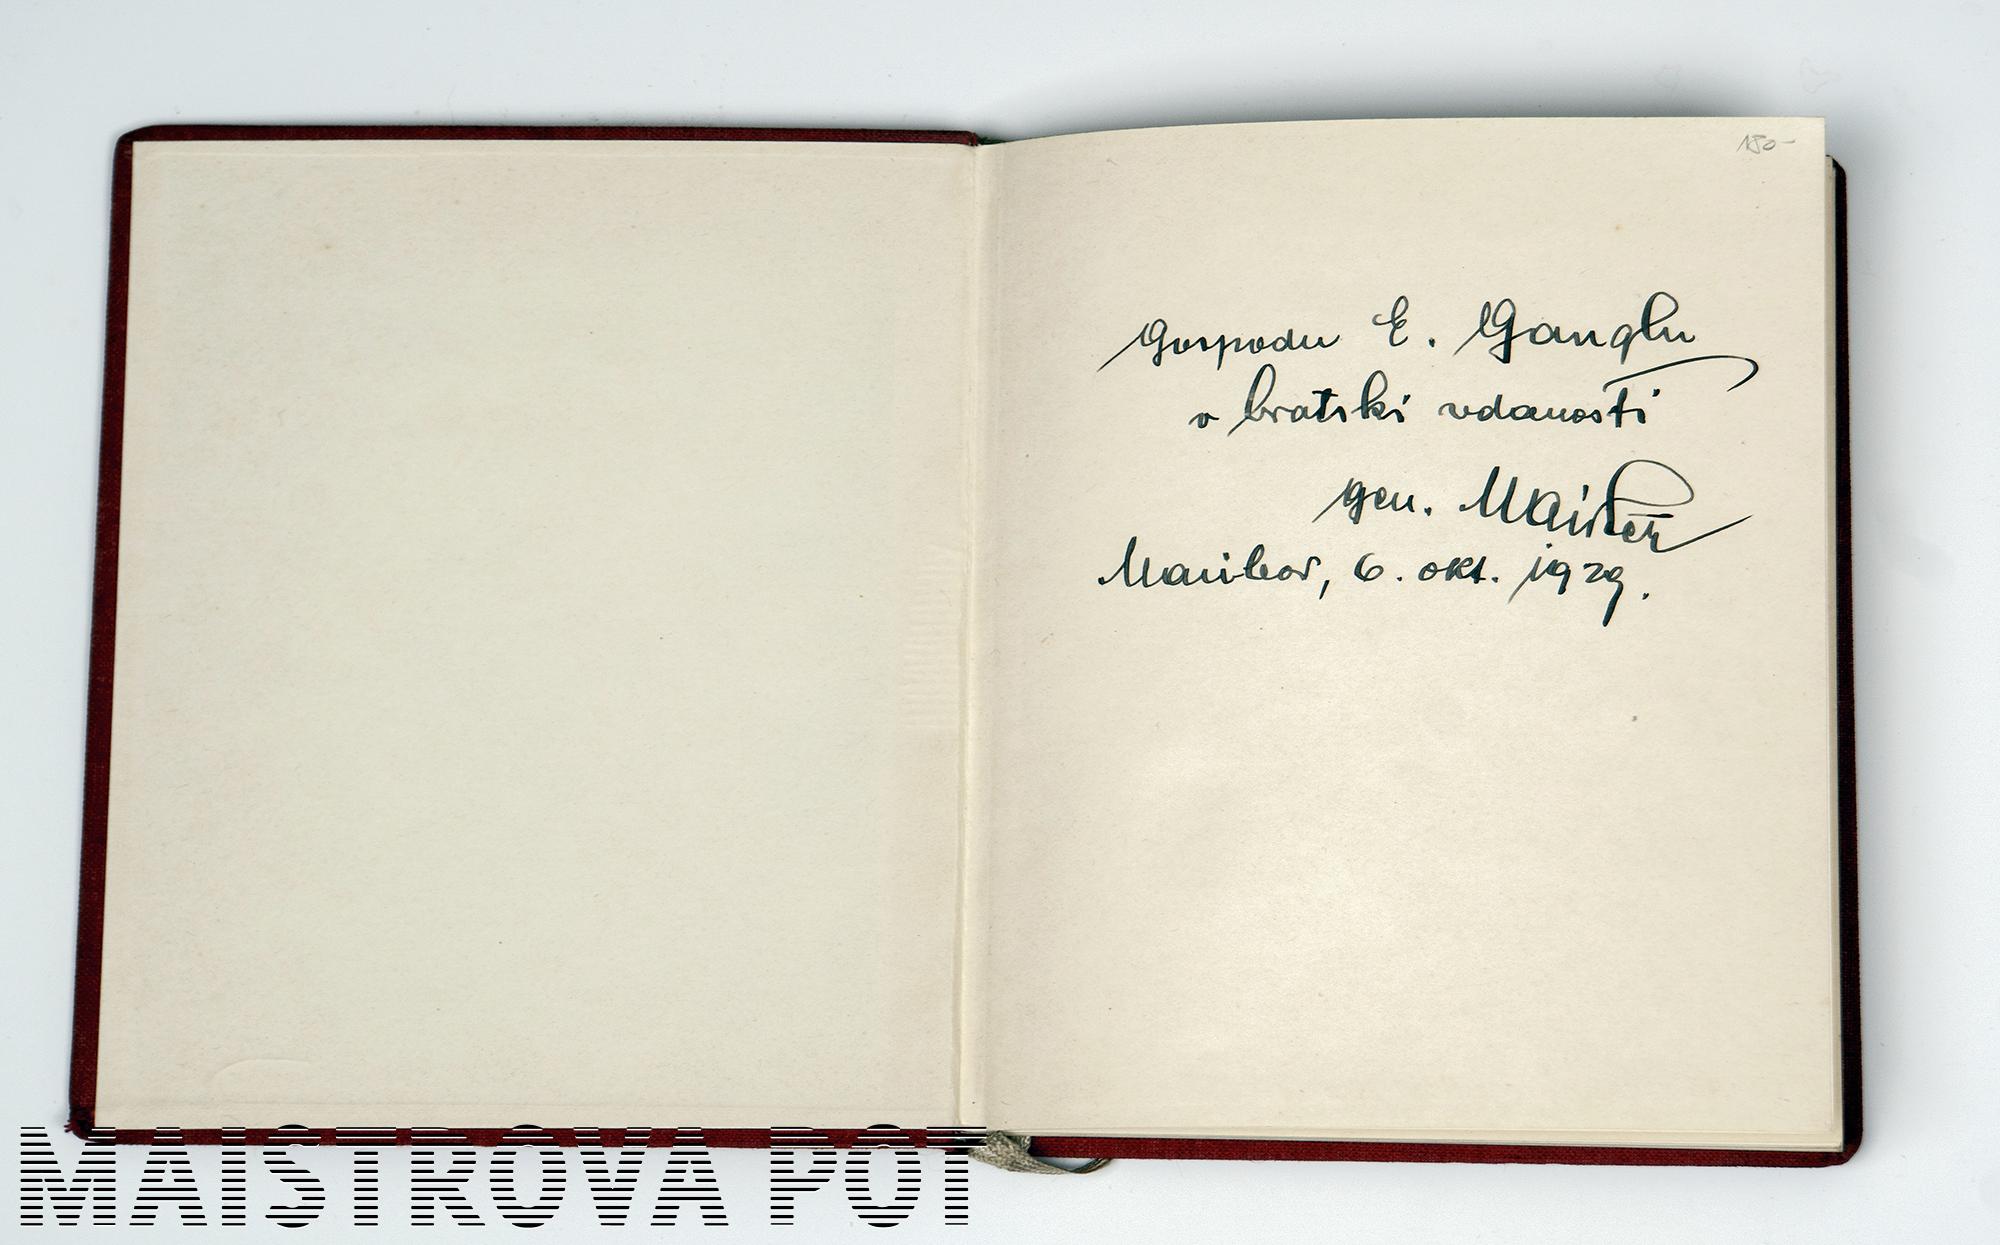 180-
Gospodu E. Ganglu
v bratski vdanosti
gen. Maister
Maribor, 6. okt. 1929.
MAISTROVA POT